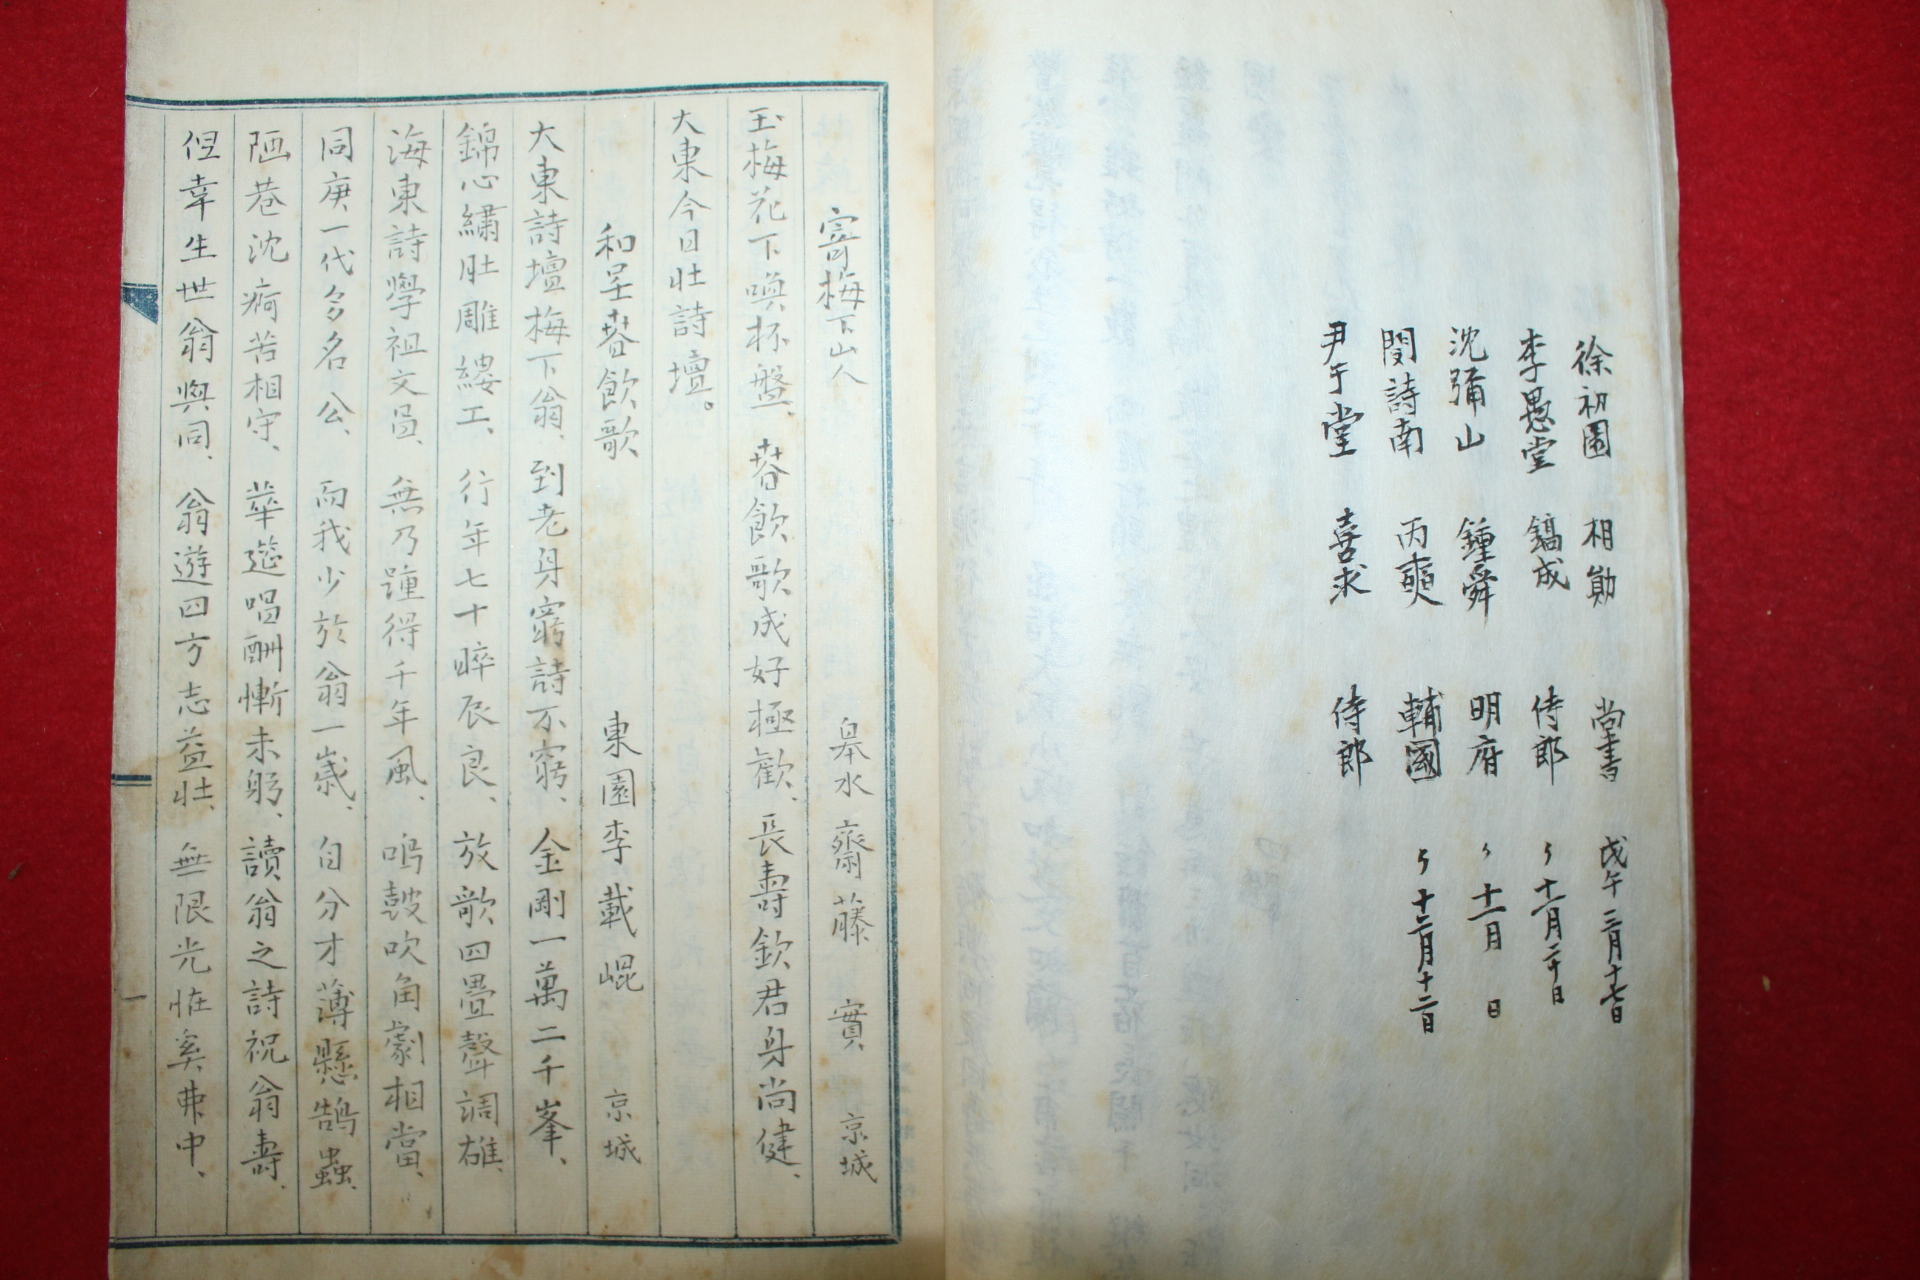 徐初園 相勛 尚書 戊午三月十七日
李愚堂 鎬成 侍郎 〃 十一月二十日
沈彌山 鍾舜 明府 〃 十一月 日
閔詩南 丙奭 輔國 〃 十二月十二日
尹于堂 喜求 侍郎
寄梅下山人 皋水 齋藤 實 京城
玉梅花下喚杯盤、 春飲歌成好極歡、長壽欽君身尚健、
大東今日壯詩壇。
和呈春飲歌 東園李載崐 京城
大東詩壇梅下翁、到老身窮詩不窮、金剛一萬二千峯、
錦心繡肚雕縷工、行年七十晬辰良、放歌四疊聲調雄、
海東詩學祖文昌、無乃踵得千年風、鳴鼓吹角劇相當、
同庚一代多名公、而我少於翁一歲、自分才薄懸鵠蟲、
陋巷沈痾苦相守、華筵唱酬慚未躬、讀翁之詩祝翁壽、
但幸生世翁與同、翁遊四方志益壯、無限光恠奚弗中、
一